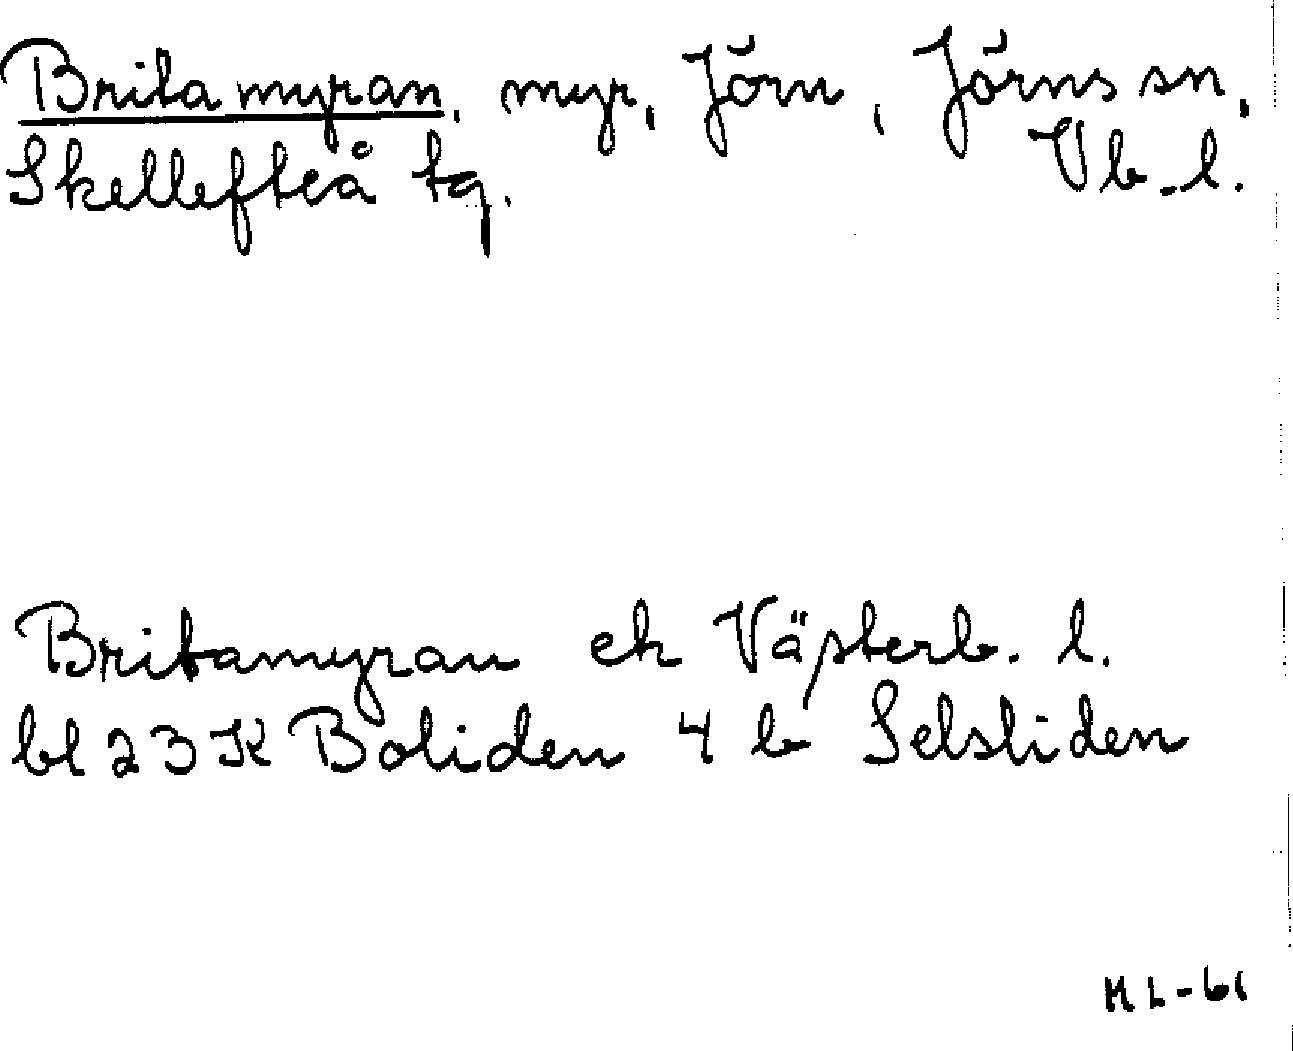 Britamyran, myr, Jörn, Jörns sn,
Skellefteå tg. Vb.l.
Britamyran ek Västerb. l.
bl 23 K Boliden 4 b Selsliden
ML-61